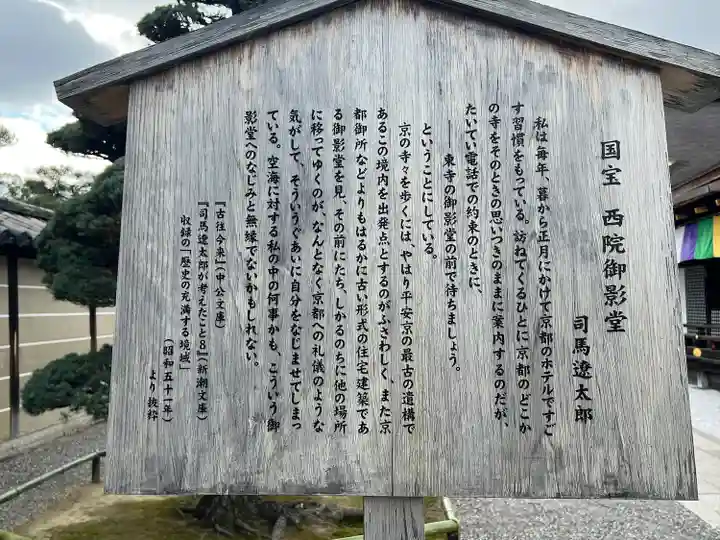 国宝 西院御影堂
司馬遼太郎
私は毎年、暮から正月にかけて京都のホテルですご
す習慣をもっている。訪ねてくるひとに京都のどこか
の寺をそのときの思いつきのままに案内するのだが、
たいてい電話での約束のときに、
── 東寺の御影堂の前で待ちましょう。
ということにしている。
京の寺々を歩くには、やはり平安京の最古の遺構で
あるこの境内を出発点とするのがふさわしく、また京
都御所などよりもはるかに古い形式の住宅建築であ
る御影堂を見、その前にたち、しかるのちに他の場所
に移ってゆくのが、なんとなく京都への礼儀のような
気がして、そういうぐあいに自分をなじませてしまっ
ている。空海に対する私の中の何事かも、こういう御
影堂へのなじみと無縁でないかもしれない。
『古往今来』(中公文庫)
『司馬遼太郎が考えたこと8』(新潮文庫)
収録の「歴史の充満する境域」
(昭和五十一年)
より抜粋